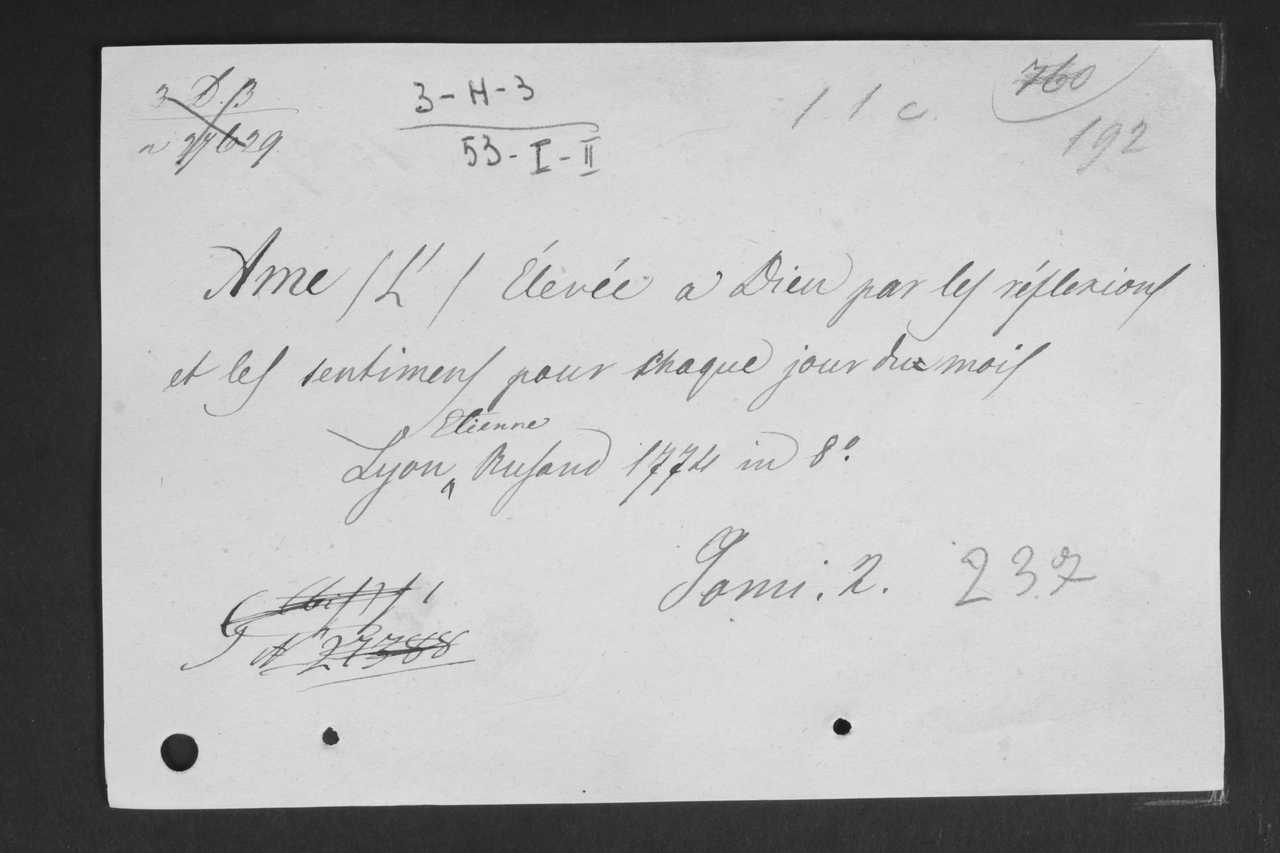 3 D. β
n 27629.
3-H-3
53-I-II
1. 1 c.
760
192
Ame (L') Élevée a Dieu par les réflexions
et les sentimens pour chaque jour du mois
Etienne
Lyon Rusand 1774 in 8º.
Tomi. 2. 237
N 27388